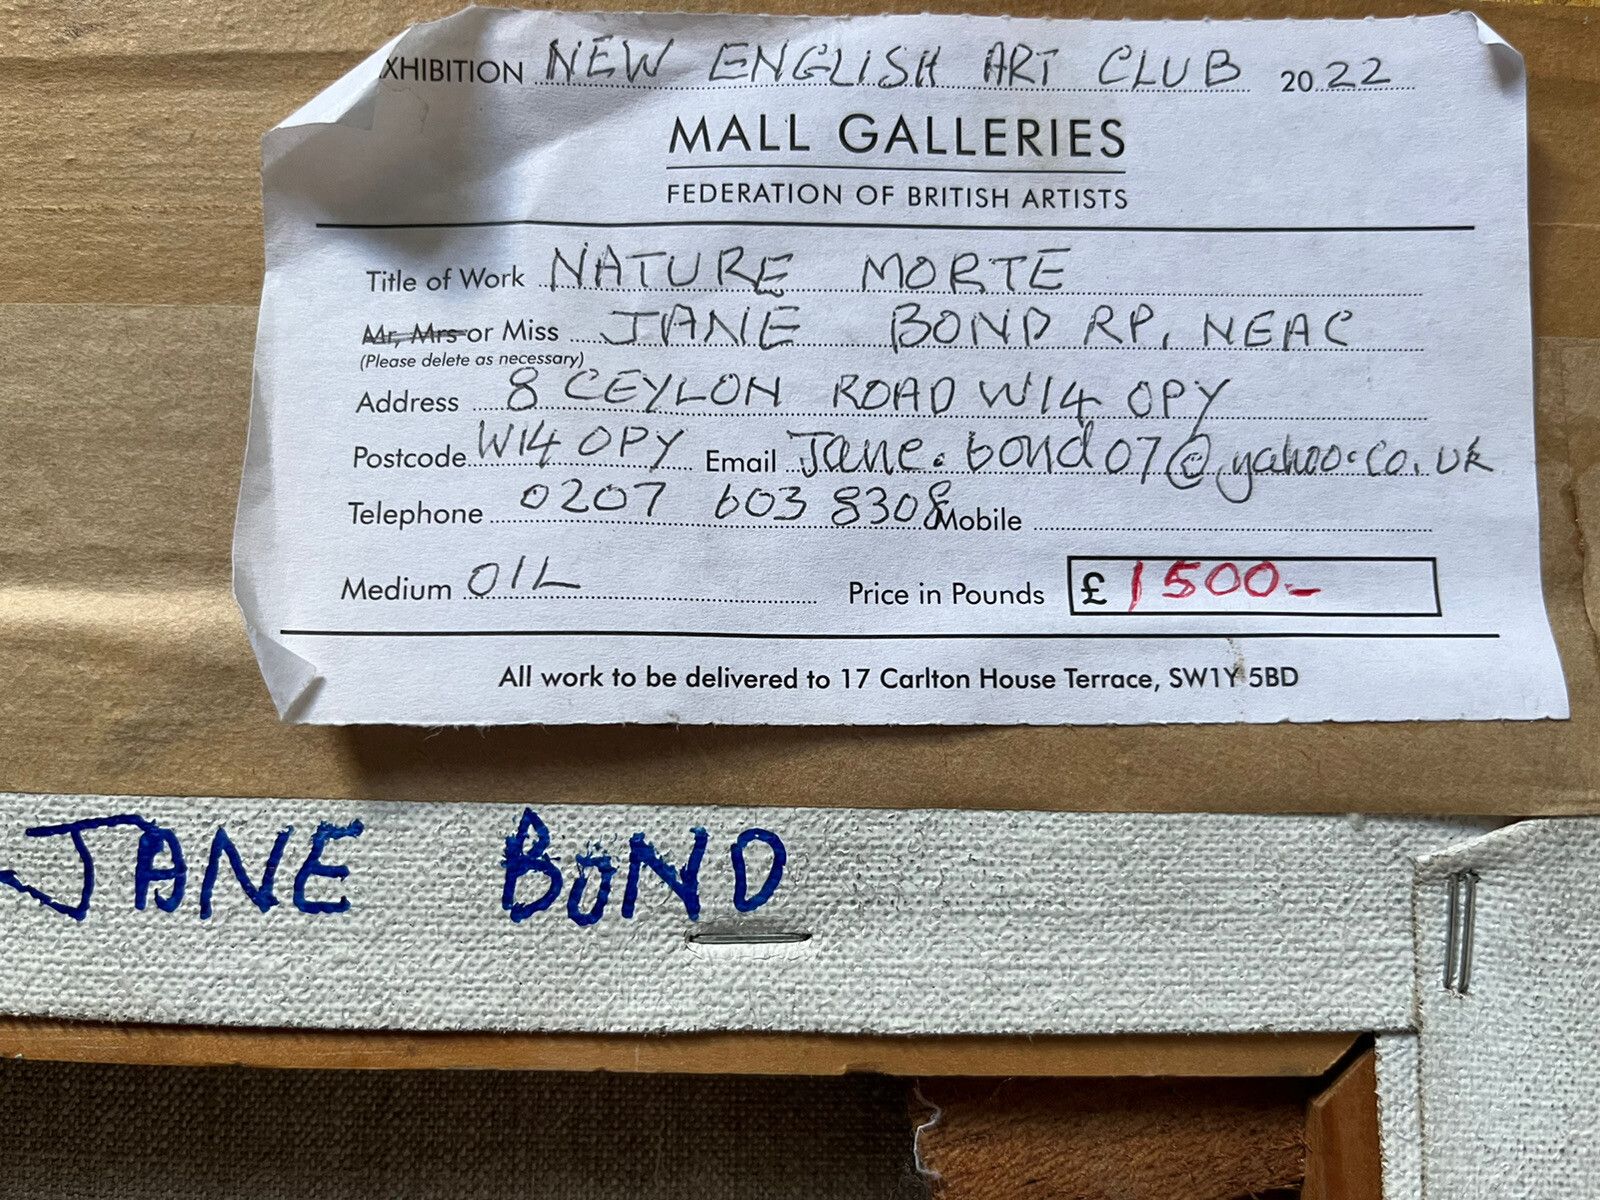 XHIBITION NEW ENGLISH ART CLUB 2022
MALL GALLERIES
FEDERATION OF BRITISH ARTISTS
Title of Work NATURE MORTE
Mr, Mrs or Miss JANE BOND RP, NEAC
(Please delete as necessary)
Address 8 CEYLON ROAD W14 0PY
Postcode W14 0PY Email Jane.bond07@yahoo.co.uk
Telephone 0207 603 8308 Mobile
Medium OIL Price in Pounds £1500-
All work to be delivered to 17 Carlton House Terrace, SW1Y 5BD
JANE BOND